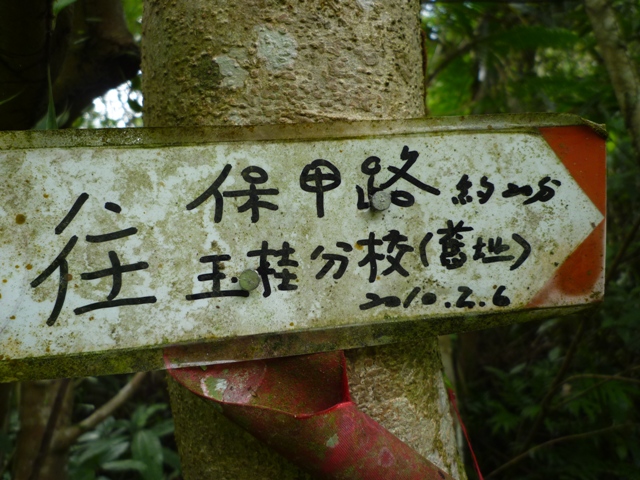 往
保甲路 約20分
玉桂分校(舊地)
2010.2.6